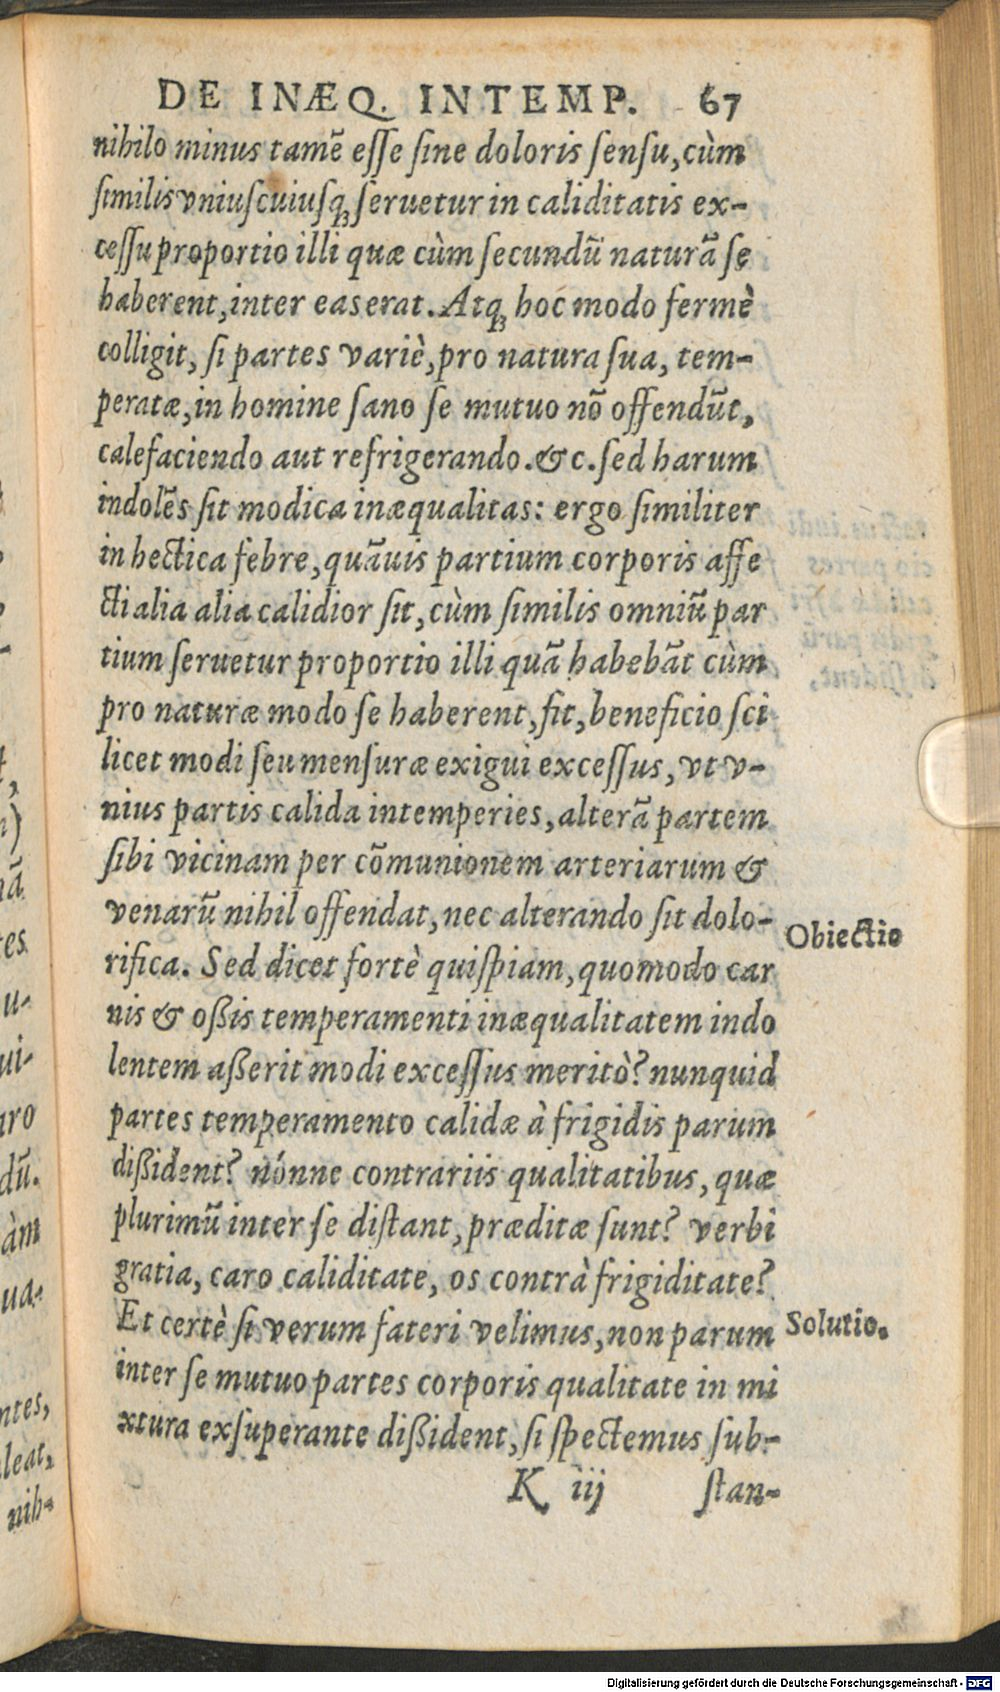 DE INÆQ. INTEMP. 67
nihilo minus tamē esse sine doloris sensu, cùm
similis vniuscuiusq; seruetur in caliditatis ex-
cessu proportio illi quæ cùm secundū naturā se
haberent, inter eas erat. Atq; hoc modo fermè
colligit, si partes variè, pro natura sua, tem-
peratæ, in homine sano se mutuo nō offendūt,
calefaciendo aut refrigerando. &c. sed harum
indolēs sit modica inæqualitas: ergo similiter
in hectica febre, quāuis partium corporis affe
cti alia alia calidior sit, cùm similis omniū par
tium seruetur proportio illi quā habebāt cùm
pro naturæ modo se haberent, fit, beneficio sci
licet modi seu mensuræ exigui excessus, vt v-
nius partis calida intemperies, alterā partem
sibi vicinam per cōmunionem arteriarum &
venarū nihil offendat, nec alterando sit dolo-
Obiectio
rifica. Sed dicet fortè quispiam, quomodo car
nis & oßis temperamenti inæqualitatem indo
lentem aßerit modi excessus meritò? nunquid
partes temperamento calidæ à frigidis parum
dißident? nónne contrariis qualitatibus, quæ
plurimū inter se distant, præditæ sunt? verbi
gratia, caro caliditate, os contrà frigiditate?
Et certè si verum fateri velimus, non parum
Solutio.
inter se mutuo partes corporis qualitate in mi
xtura exsuperante dißident, si spectemus sub-
K iij stan-
Digitalisierung gefördert durch die Deutsche Forschungsgemeinschaft - DFG